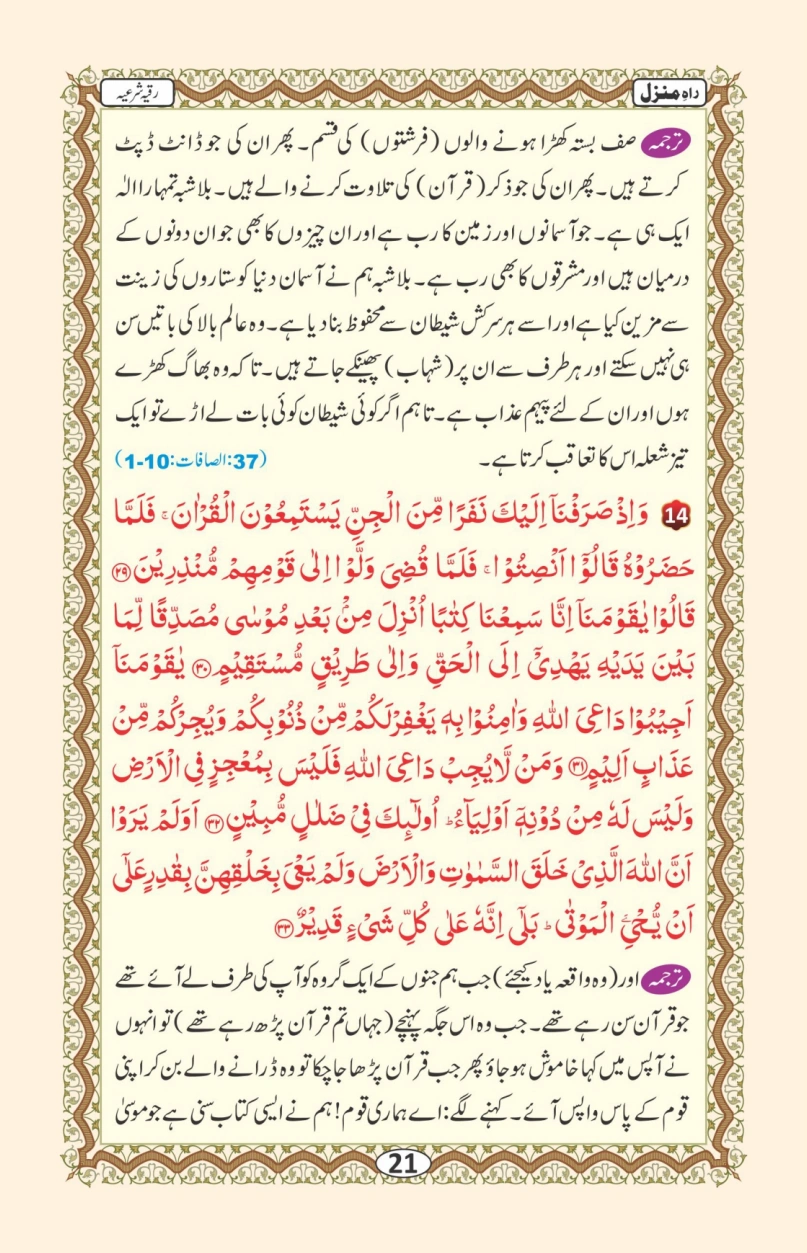 راہِ منزل
رقیہ شرعیہ
ترجمہ صف بستہ کھڑا ہونے والوں (فرشتوں) کی قسم۔ پھر ان کی جو ڈانٹ ڈپٹ
کرتے ہیں۔ پھر ان کی جو ذکر (قرآن) کی تلاوت کرنے والے ہیں۔ بلاشبہ تمہارا الٰہ
ایک ہی ہے۔ جو آسمانوں اور زمین کا رب ہے اور ان چیزوں کا بھی جو ان دونوں کے
درمیان ہیں اور مشرقوں کا بھی رب ہے۔ بلاشبہ ہم نے آسمان دنیا کو ستاروں کی زینت
سے مزین کیا ہے اور اسے ہر سرکش شیطان سے محفوظ بنا دیا ہے۔ وہ عالم بالا کی باتیں سن
ہی نہیں سکتے اور ہر طرف سے ان پر (شہاب) پھینکے جاتے ہیں۔ تاکہ وہ بھاگ کھڑے
ہوں اور ان کے لئے پیہم عذاب ہے۔ تاہم اگر کوئی شیطان کوئی بات لے اڑے تو ایک
تیز شعلہ اس کا تعاقب کرتا ہے۔ (37:الصافات:10-1)
14 وَاِذْ صَرَفْنَآ اِلَيْكَ نَفَرًا مِّنَ الْجِنِّ يَسْتَمِعُوْنَ الْقُرْاٰنَ ۚ فَلَمَّا
حَضَرُوْهُ قَالُوْٓا اَنْصِتُوْا ۚ فَلَمَّا قُضِيَ وَلَّوْا اِلٰى قَوْمِهِمْ مُّنْذِرِيْنَ ﴿۲۹﴾
قَالُوْا يٰقَوْمَنَآ اِنَّا سَمِعْنَا كِتٰبًا اُنْزِلَ مِنْۢ بَعْدِ مُوْسٰى مُصَدِّقًا لِّمَا
بَيْنَ يَدَيْهِ يَهْدِيْٓ اِلَى الْحَقِّ وَاِلٰى طَرِيْقٍ مُّسْتَقِيْمٍ ﴿۳۰﴾ يٰقَوْمَنَآ
اَجِيْبُوْا دَاعِيَ اللّٰهِ وَاٰمِنُوْا بِهٖ يَغْفِرْلَكُمْ مِّنْ ذُنُوْبِكُمْ وَيُجِرْكُمْ مِّنْ
عَذَابٍ اَلِيْمٍ ﴿۳۱﴾ وَمَنْ لَّا يُجِبْ دَاعِيَ اللّٰهِ فَلَيْسَ بِمُعْجِزٍ فِي الْاَرْضِ
وَلَيْسَ لَهٗ مِنْ دُوْنِهٖٓ اَوْلِيَآءُ ؕ اُولٰٓئِكَ فِيْ ضَلٰلٍ مُّبِيْنٍ ﴿۳۲﴾ اَوَلَمْ يَرَوْا
اَنَّ اللّٰهَ الَّذِيْ خَلَقَ السَّمٰوٰتِ وَالْاَرْضَ وَلَمْ يَعْيَ بِخَلْقِهِنَّ بِقٰدِرٍ عَلٰٓى
اَنْ يُّحْيِۦَ الْمَوْتٰى ؕ بَلٰٓى اِنَّهٗ عَلٰى كُلِّ شَيْءٍ قَدِيْرٌ ﴿۳۳﴾
ترجمہ اور (وہ واقعہ یاد کیجئے) جب ہم جنوں کے ایک گروہ کو آپ کی طرف لے آئے تھے
جو قرآن سن رہے تھے۔ جب وہ اس جگہ پہنچے (جہاں تم قرآن پڑھ رہے تھے) تو انہوں
نے آپس میں کہا خاموش ہو جاؤ پھر جب قرآن پڑھا جا چکا تو وہ ڈرانے والے بن کر اپنی
قوم کے پاس واپس آئے۔ کہنے لگے: اے ہماری قوم! ہم نے ایسی کتاب سنی ہے جو موسیٰ
21